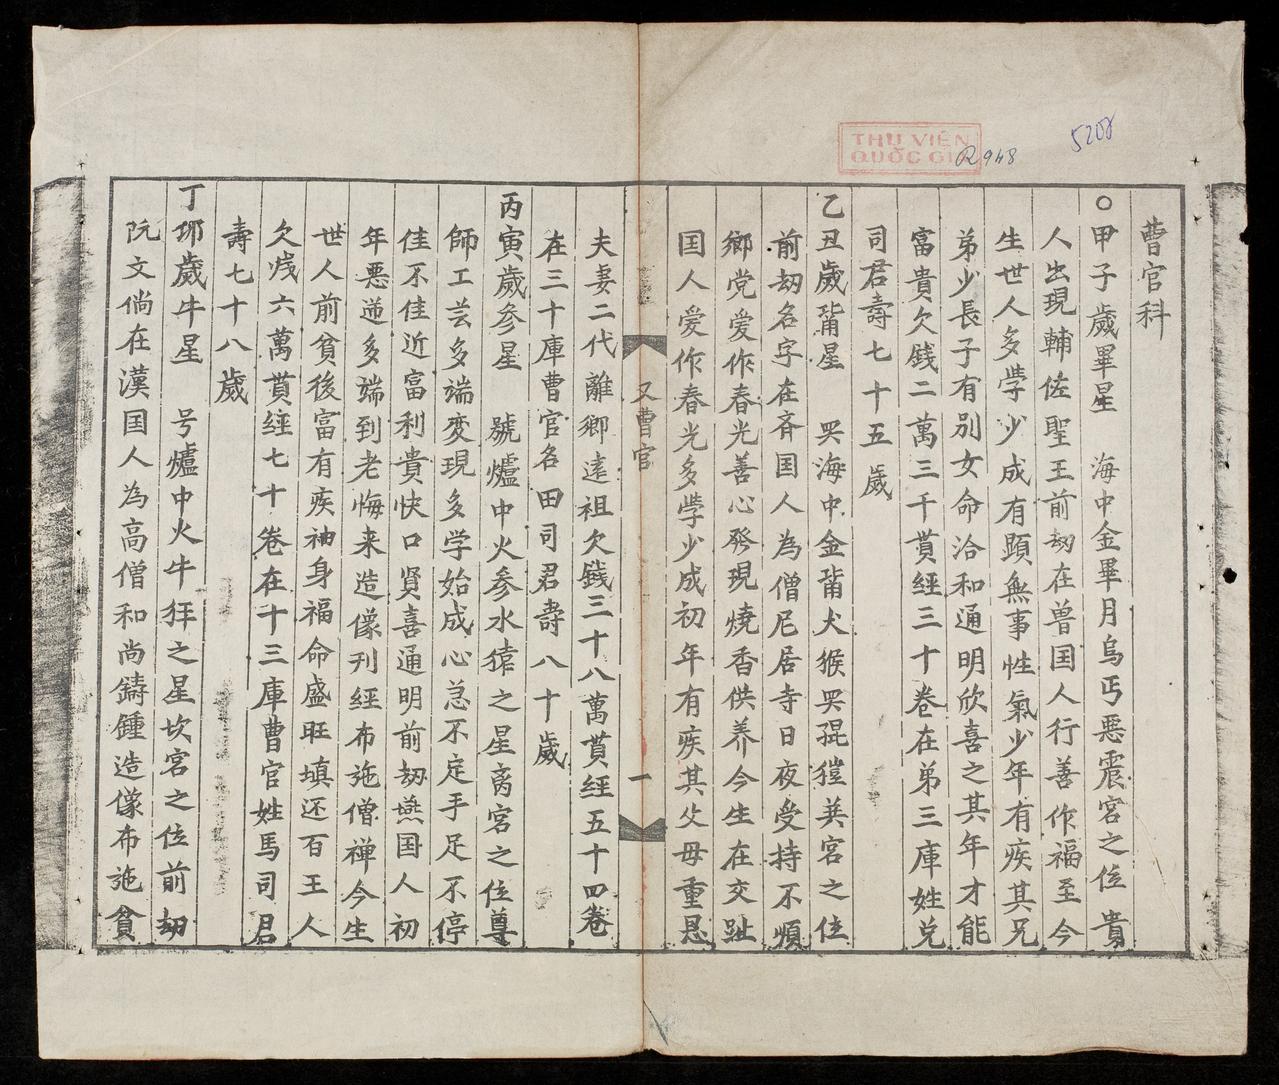 THƯ VIÊN
QUỐC GIA
R948
5208
曹官科
○甲子歲畢星 海中金畢月烏丐悪震宮之位 貴
人出現輔佐聖王前刼在曾国人行善作福至今
生世人多學少成有顕無事性氣少年有疾其兄
弟少長子有別女命洽和通明欣喜之其年才能
富貴欠銭二萬三千貫經三十卷在第三庫姓兑
司君壽七十五歲
乙丑歲觜星 哭海中金觜犬猴哭猑獾巽宮之位
前刼名字在斉国人為僧尼居寺日夜受持不煩
鄉党爱作春光善心発現燒香供养今生在交趾
国人爱作春光多學少成初年有疾其父母重恩
又曹官
一
夫妻二代離鄉遠祖欠錢三十八萬貫經五十四卷
在三十庫曹官名田司君壽八十歲
丙寅歲参星 號爐中火参水猿之星离宮之位尊
師工芸多端変現多学始成心急不定手足不停
佳不佳近富利貴快口賢喜通明前刼燕国人初
年悪逆多端到老悔来造像刋經布施僧禅今生
世人前貧後富有疾袖身福命盛旺填还百王人
欠㦮六萬貫經七十卷在十三庫曹官姓馬司君
壽七十八歲
丁夘歲牛星 号爐中火牛𤜯之星坎宮之位前刼
阮文倘在漢国人為高僧和尚鑄鍾造像布施貧